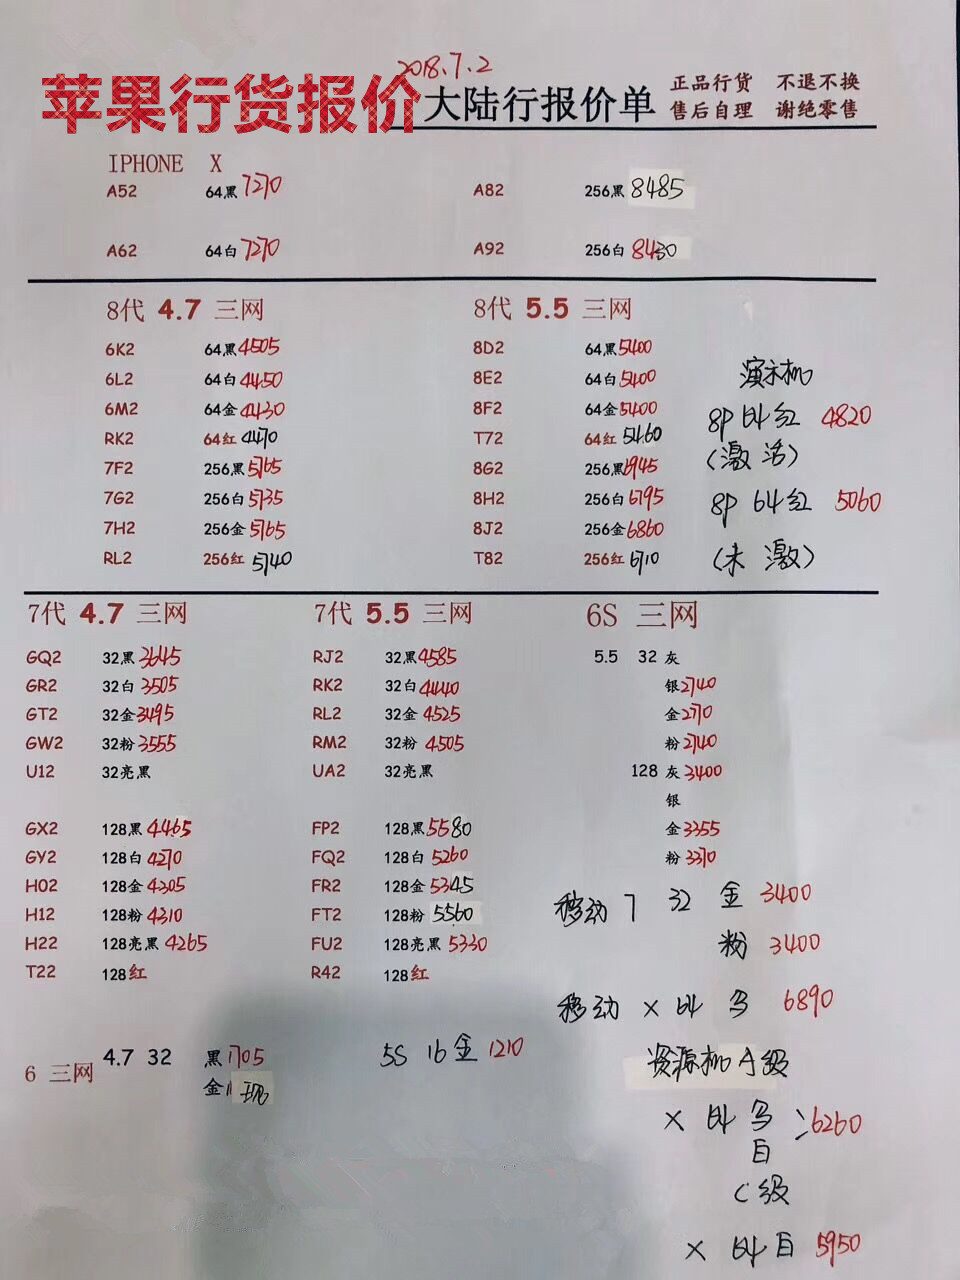 2018.7.2
苹果行货报价 大陆行报价单 正品行货 不退不换
售后自理 谢绝零售
IPHONE X
A52 64黑 7270 A82 256黑 8485
A62 64白 7270 A92 256白 8430
8代 4.7 三网 8代 5.5 三网
6K2 64黑 4505 8D2 64黑 5400
6L2 64白 4450 8E2 64白 5400 演示机
6M2 64金 4430 8F2 64金 5400 8P 64 红 4820
RK2 64红 4470 T72 64红 5460 (激活)
7F2 256黑 5765 8G2 256黑 6945
7G2 256白 5735 8H2 256白 6795 8P 64红 5060
7H2 256金 5765 8J2 256金 6860
RL2 256红 5740 T82 256红 6710 (未激)
7代 4.7 三网 7代 5.5 三网 6S 三网
GQ2 32黑 3645 RJ2 32黑 4585 5.5 32 灰
GR2 32白 3505 RK2 32白 4440 银 2740
GT2 32金 3495 RL2 32金 4525 金 2710
GW2 32粉 3555 RM2 32粉 4505 粉 2740
U12 32亮黑 UA2 32亮黑 128 灰 3400
银
GX2 128黑 4465 FP2 128黑 5580 金 3355
GY2 128白 4270 FQ2 128白 5260 粉 3370
H02 128金 4305 FR2 128金 5345 移动 7 32 金 3400
H12 128粉 4310 FT2 128粉 5560
H22 128亮黑 4265 FU2 128亮黑 5330 粉 3400
T22 128红 R42 128红
移动 X 64 6890
6 三网 4.7 32 黑 1705 5S 16 金 1210 资源机 A级
金
X 64 6260
白
C级
X 64 白 5950